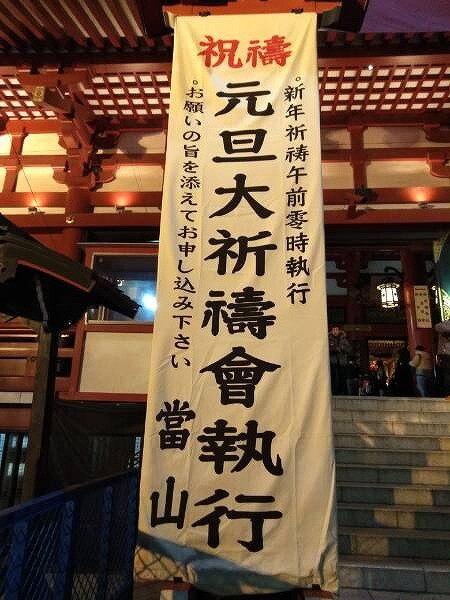 祝禱
。新年祈祷午前零時執行
元旦大祈禱會執行
。お願いの旨を添えてお申し込み下さい
當山